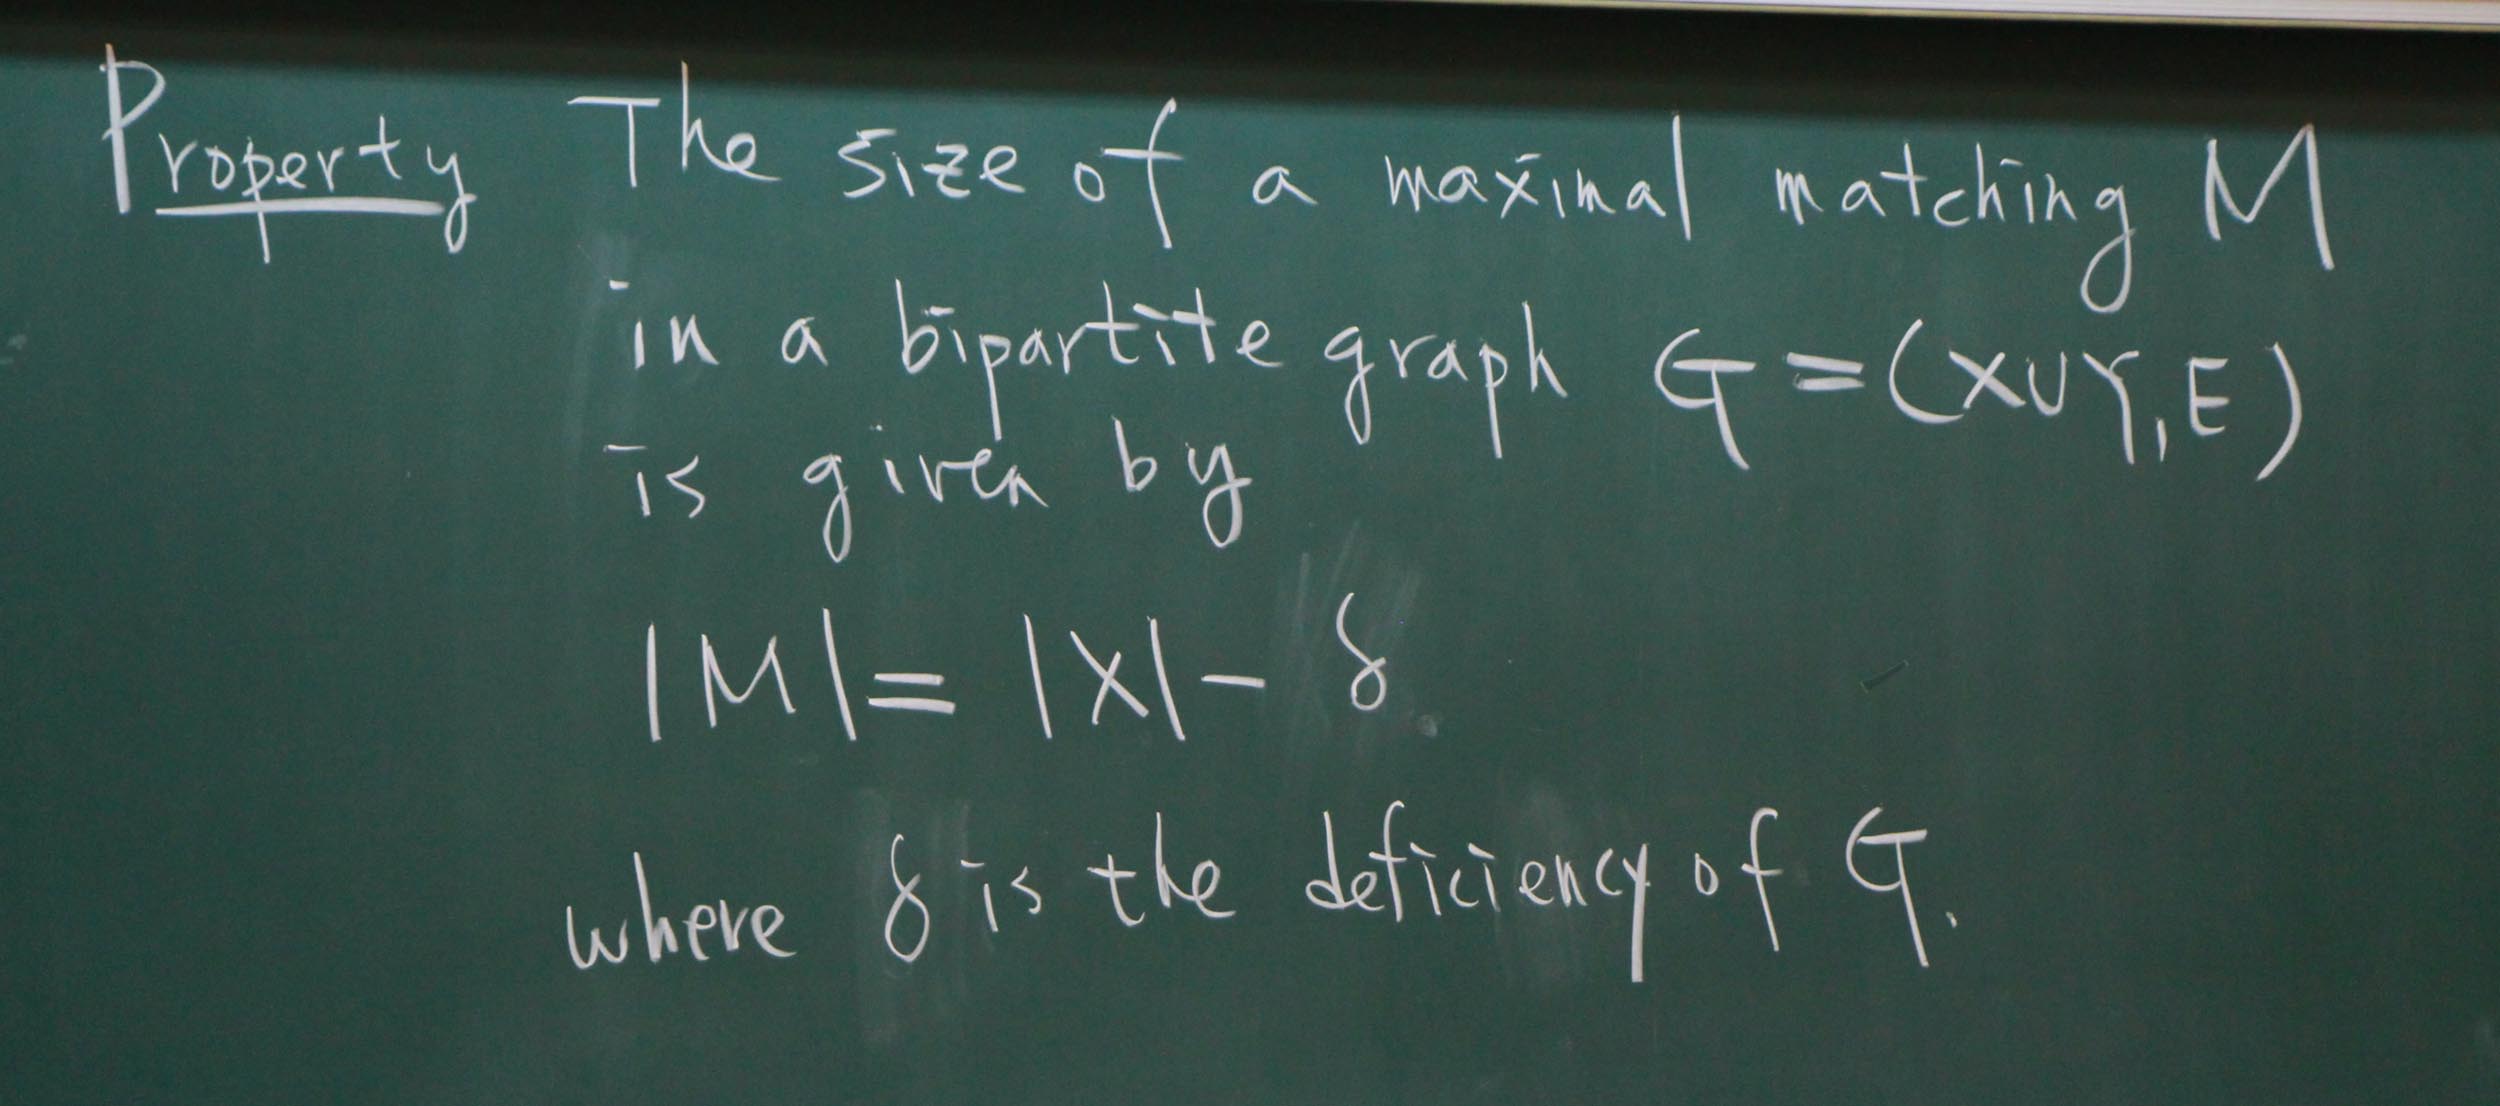 Property The size of a maximal matching M
in a bipartite graph G=(X∪Y,E)
is given by
|M|=|X|-δ
where δ is the deficiency of G.